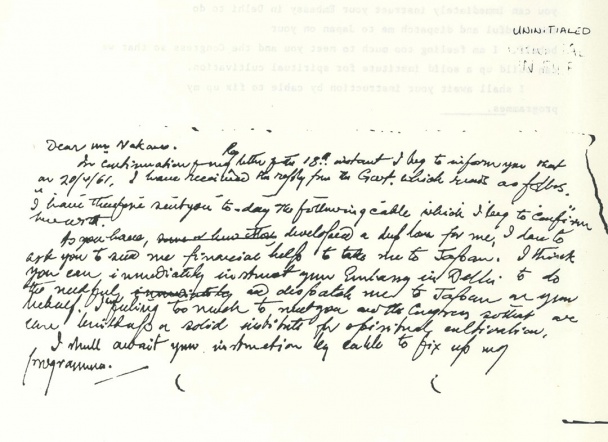 you can immediately instruct your Embassy in Delhi to do
needful and dispatch me to Japan on your
I am feeling too much to meet you and the Congress so that
build up a solid institute for spiritual cultivation.
I shall await your instruction by cable to fix up my
programme.
UNINITIALED
IN FILE
Dear Mr Nakano.
In continuation of my letter of the 18th instant I beg to inform you that
on 20/4/61, I have received the reply from the Govt. which reads as follows.
"I have therefore sent you to-day the following cable which I beg to confirm
herewith.
As you have, developed a deep love for me, I dare to
ask you to send me financial help to take me to Japan. I think
you can immediately instruct your Embassy in Delhi to do
the needful immediately and dispatch me to Japan on your
behalf. I am feeling too much to meet you and the Congress so that we
can build up a solid institute for spiritual cultivation.
I shall await your instruction by cable to fix up my
programme.